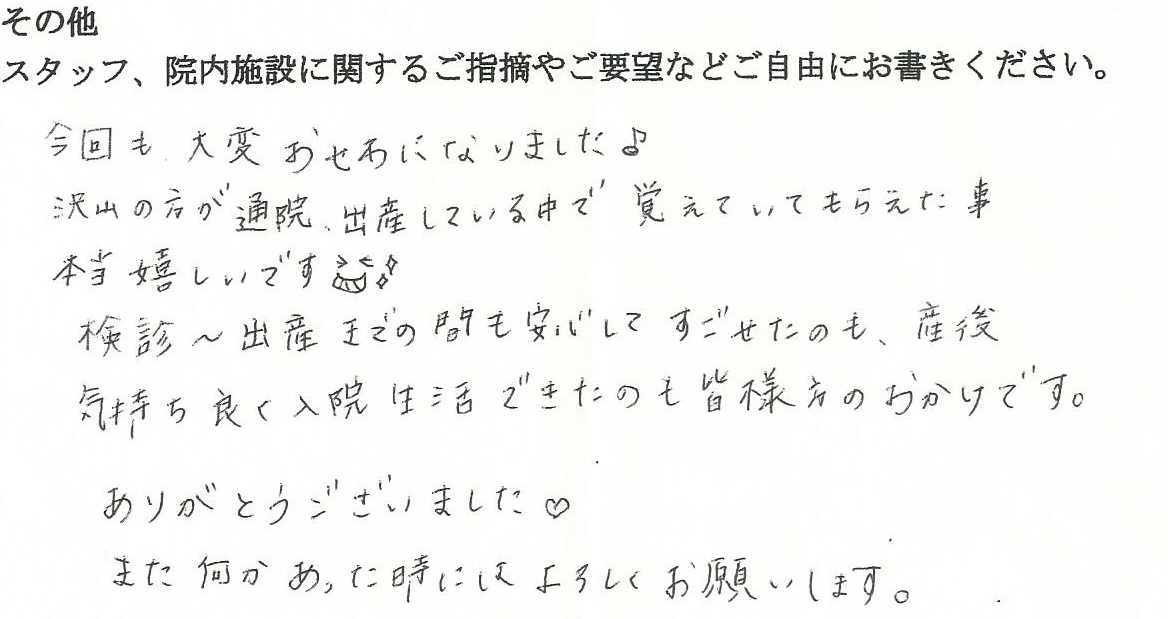 その他
スタッフ、院内施設に関するご指摘やご要望などご自由にお書きください。
今回も 大変 おせわになりました♪
沢山の方が通院、出産している中で 覚えていてもらえた事
本当 嬉しいです
検診～出産までの間も安心して すごせたのも、産後
気持ち良く入院生活できたのも皆様方のおかげです。
ありがとうございました♡
また何かあった時にはよろしくお願いします。